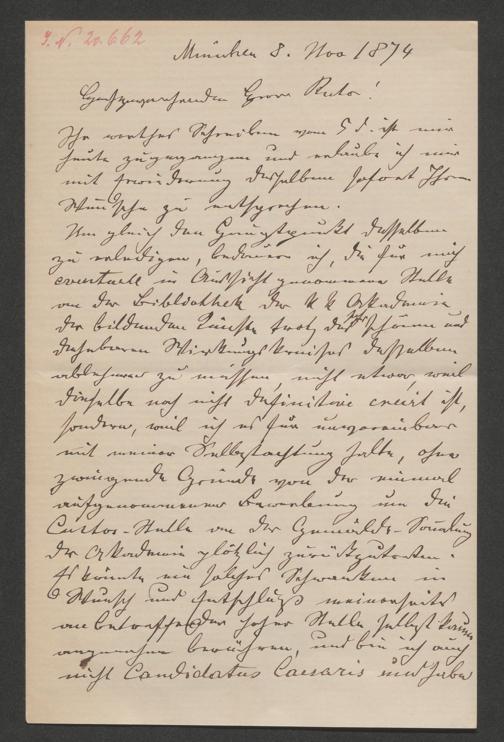 J. N. 20.662
München 8. Nov 1874
Hochzuverehrender Herr Rector!
Ihr werthes Schreiben vom 5 d. ist mir
heute zugegangen und erlaube ich mir
mit Erwiderung desselben sofort Ihrem
Wunsche zu entsprechen.
Um gleich den Hauptpunkt desselben
zu erledigen, bedauere ich, die für mich
eventuell in Aussicht genommene Stelle
an der Bibliothek der KK Akademie
der bildenden Künste trotz des schönen und
dankbaren Wirkungskreises desselben
ablehnen zu müssen, nicht etwa, weil
dieselbe noch nicht definitiv creirt ist,
sondern, weil ich es für unvereinbar
mit meiner Selbstachtung halte, ohne
zwingende Gründe von der einmal
aufgenommenen Bewerbung um die
Custos-Stelle an der Gemälde-Samlung
der Akademie plötzlich zurückzutreten.
Es könnte ein solches Schwanken in
Wunsch und Entschluß meinerseits
an betreffender hoher Stelle selbst kaum
angenehm berühren, und bin ich auch
nicht Candidatus Caesaris und habe